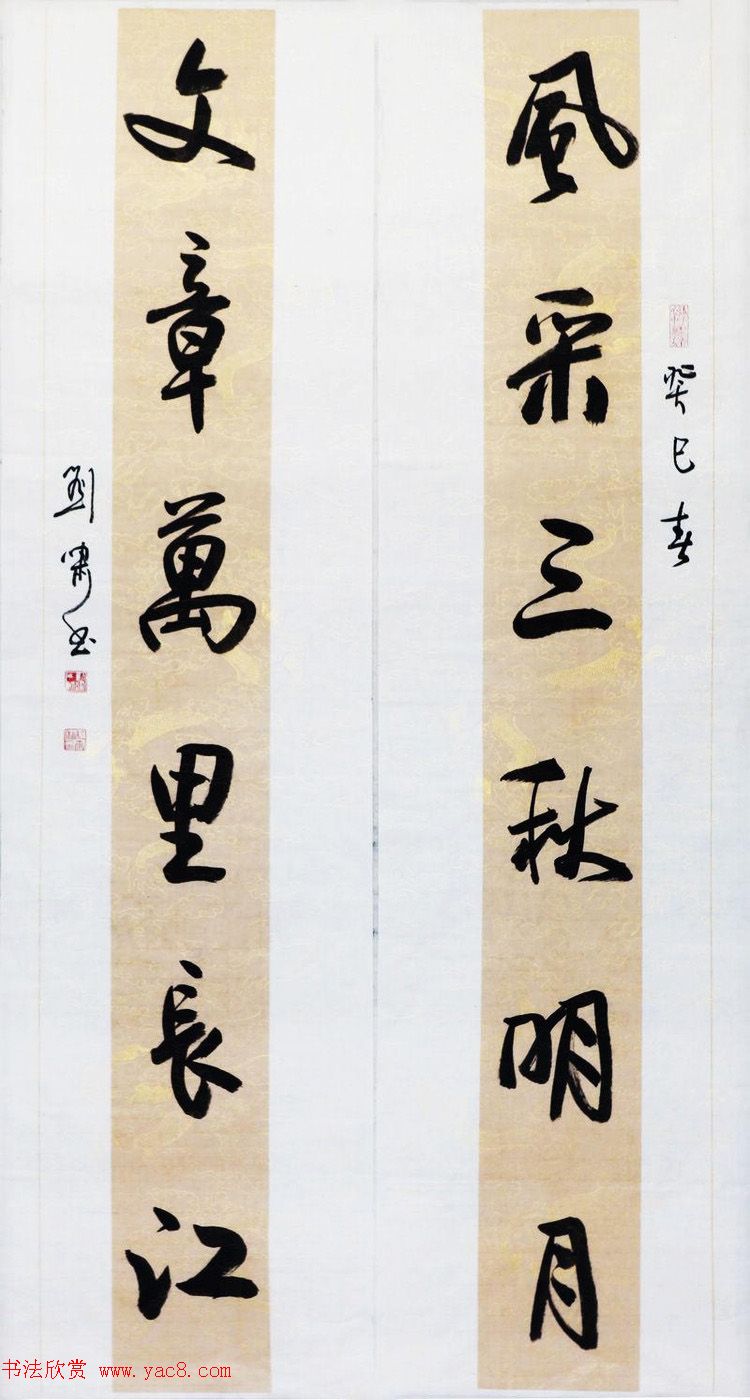 癸巳春
風采三秋明月
文章萬里長江
劉嘯書
书法欣赏 www.yac8.com